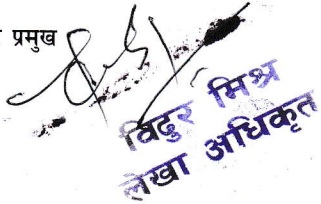 प्रमुख
विदुर मिश्र
लेखा अधिकृत